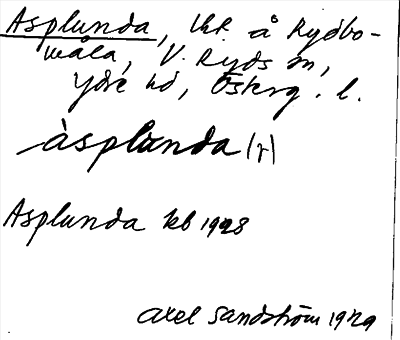 Asplunda, lht å Rydbo-
måla, V. Ryds sn,
Ydre hd, Österg. l.
àsplùnda (r)
Asplunda kb 1928
Axel Sandström 1929